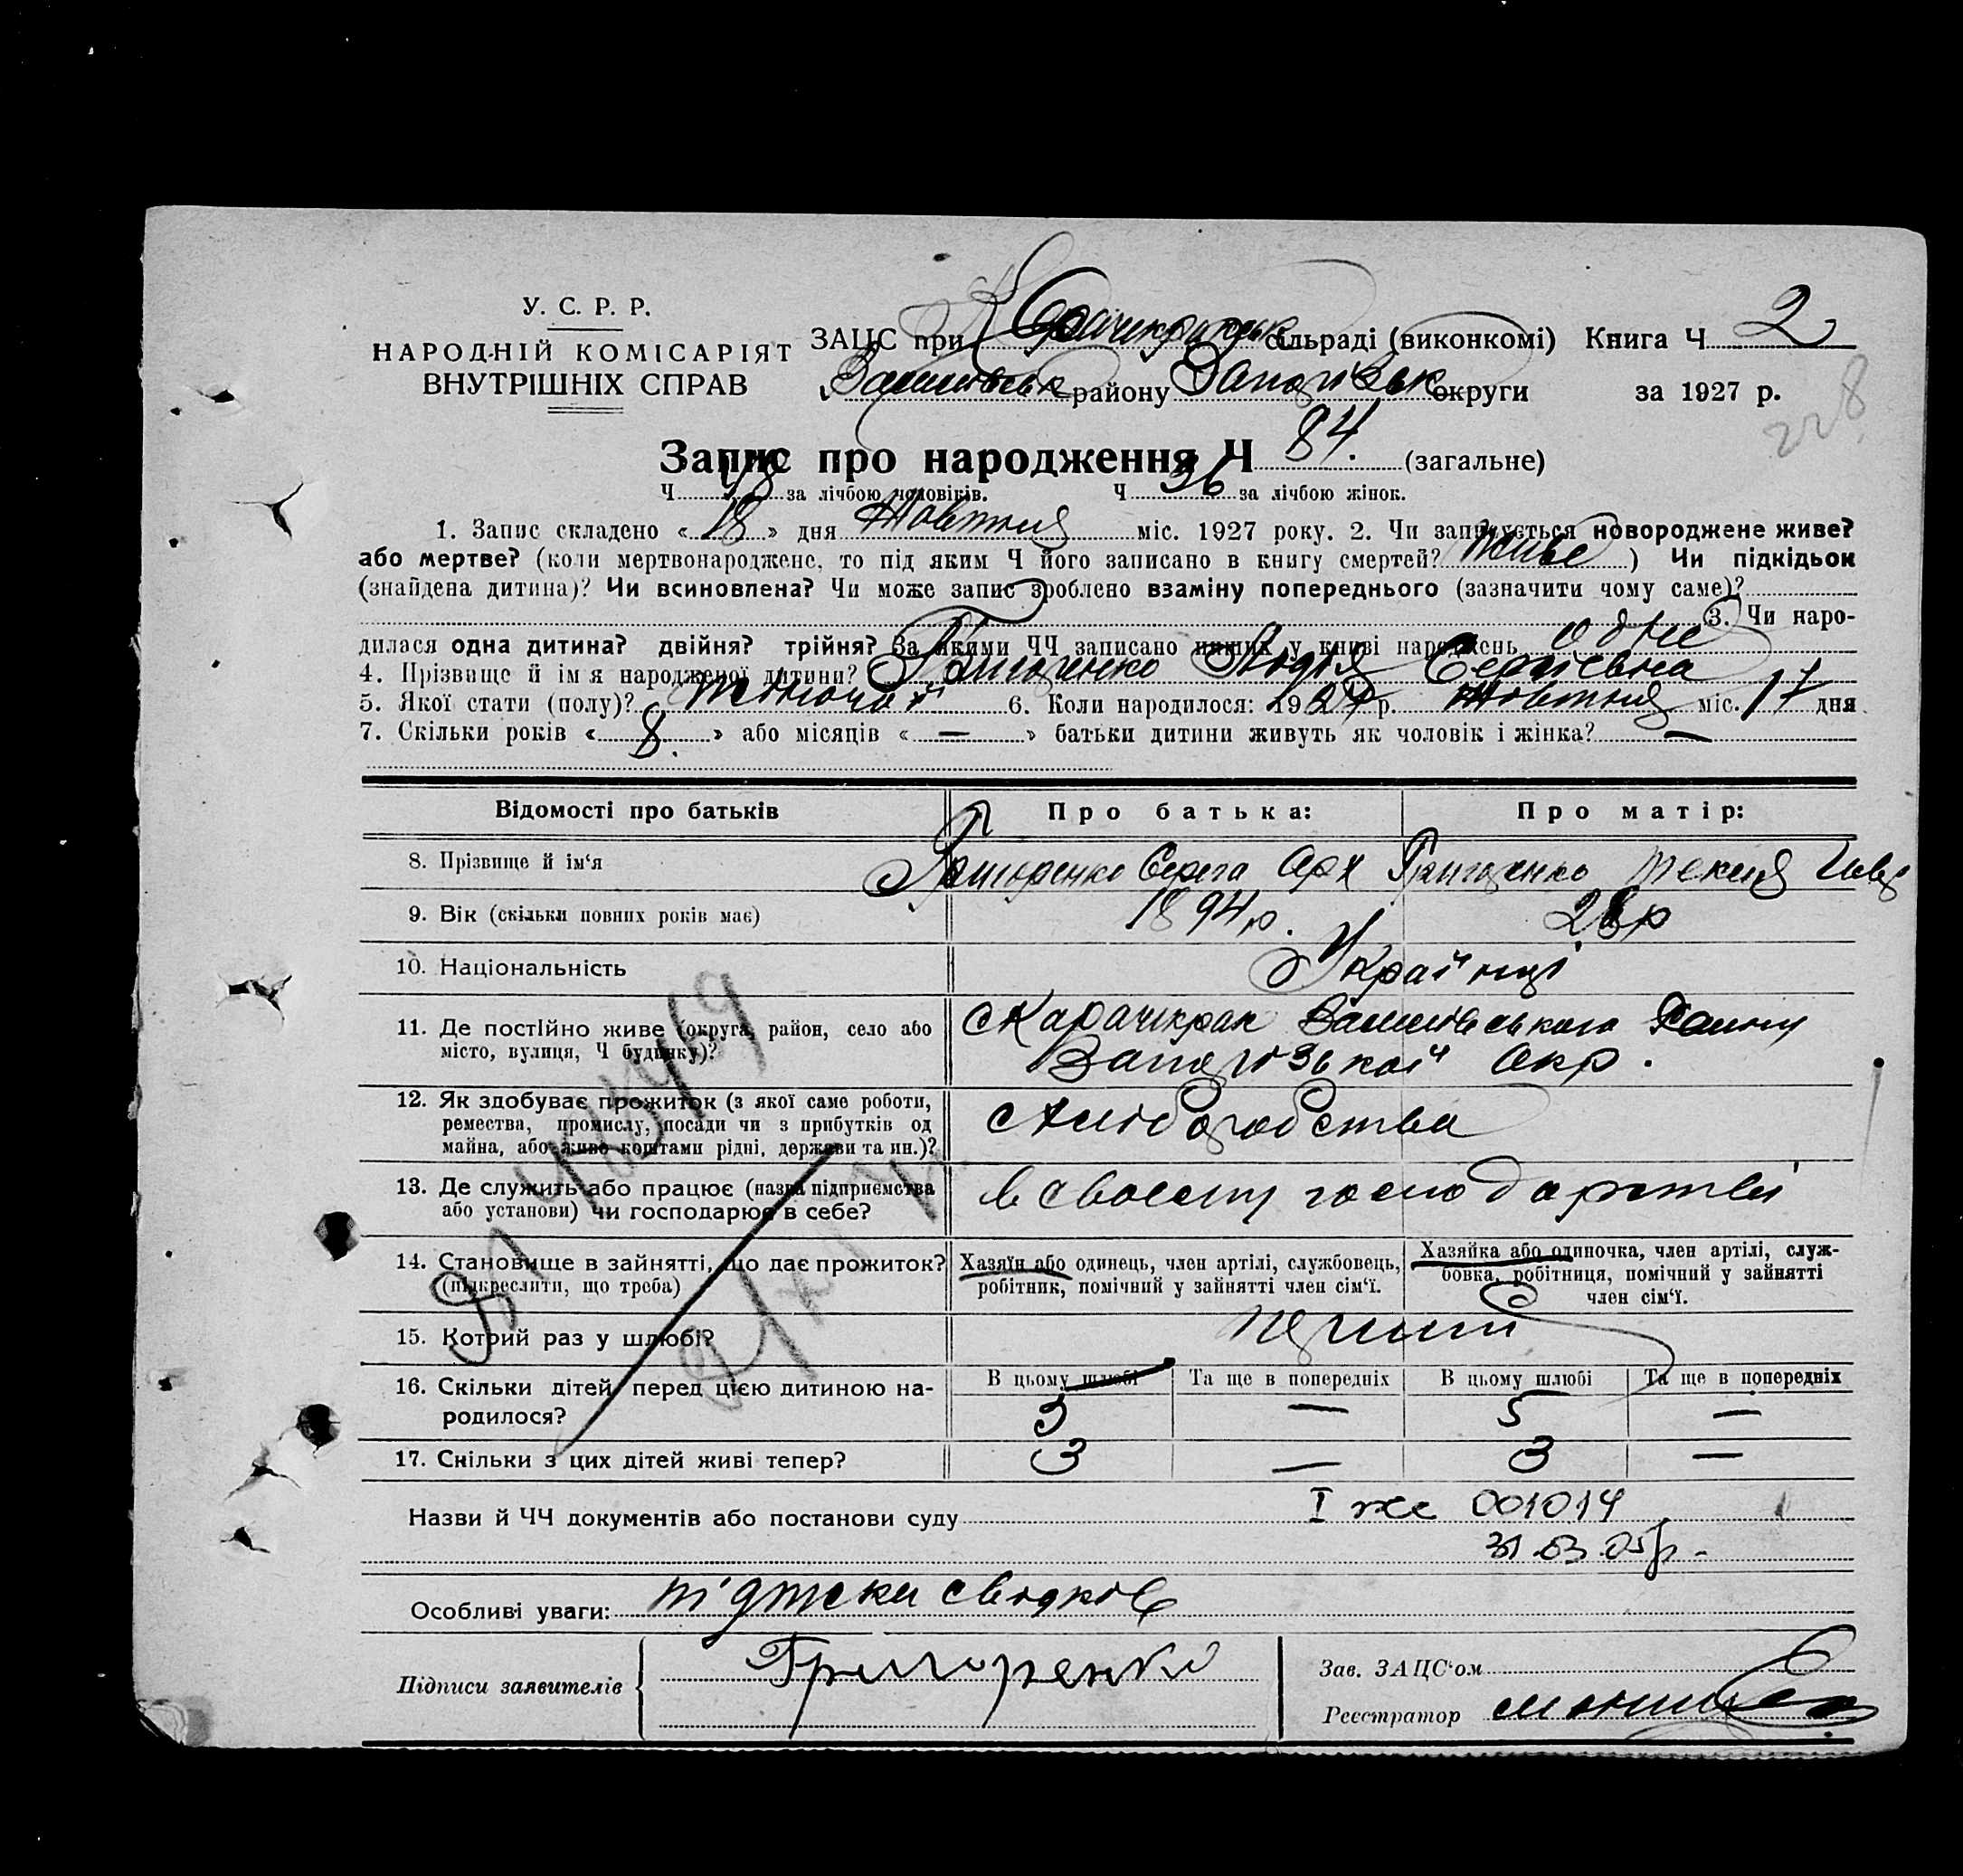 У. С. Р. Р.
НАРОДНІЙ КОМІСАРІЯТ
ВНУТРІШНІХ СПРАВ
ЗАЦС при сільраді (виконкомі) Книга Ч 2
району округи за 1927 р.
228
Запис про народження Ч 84. (загальне)
Ч 48 за лічбою чоловіків. Ч 36 за лічбою жінок.
1. Запис складено « 18 » дня Жовтня міс. 1927 року. 2. Чи записується новороджене живе?
або мертве? (коли мертвонароджене, то під яким Ч його записано в книгу смертей? живе ) Чи підкідьок
(знайдена дитина)? Чи всиновлена? Чи може запис зроблено взаміну попереднього (зазначити чому саме)?
3. Чи наро-
дилася одна дитина? двійня? трійня? За якими ЧЧ записано инших у книзі народжень одне
4. Прізвище й ім я народженої дитини? Лідія Сергієвна
5. Якої стати (полу)? жіночої 6. Коли народилося: 1927 р. Жовтня міс. 17 дня
7. Скільки років « 8. » або місяців « — » батьки дитини живуть як чоловік і жінка? —
Відомості про батьків Про батька: Про матір:
8. Прізвище й ім‘я Григоренко Серега Арх Текля
9. Вік (скільки повних років має) 1894 р. 28 р
10. Національність Українці
11. Де постійно живе (округа, район, село або
місто, вулиця, Ч будинку)?
с Карачикрак Василівського Району
Запорізької Окр.
12. Як здобуває прожиток (з якої саме роботи,
ремества, промислу, посади чи з прибутків од
майна, або живе коштами рідні, держави та ин.)?
с хліборобства
13. Де служить або працює (назва підприємства
або установи) чи господарює в себе?
в своєму господарстві
14. Становище в зайнятті, що дає прожиток?
(підкреслити, що треба)
Хазяїн або одинець, член артілі, службовець,
робітник, помічний у зайнятті член сім‘ї.
Хазяйка або одиночка, член артілі, служ-
бовка, робітниця, помічний у зайнятті
член сім‘ї.
15. Котрий раз у шлюбі?
16. Скільки дітей перед цією дитиною на-
родилося?
В цьому шлюбі Та ще в попередніх В цьому шлюбі Та ще в попередніх
5 — 5 —
17. Скільки з цих дітей живі тепер? 3 — 3 —
Назви й ЧЧ документів або постанови суду І же 001014
31.03.05р.
Особливі уваги: свідків
Підписи заявителів Григоренко
Зав. ЗАЦС‘ом
Реєстратор